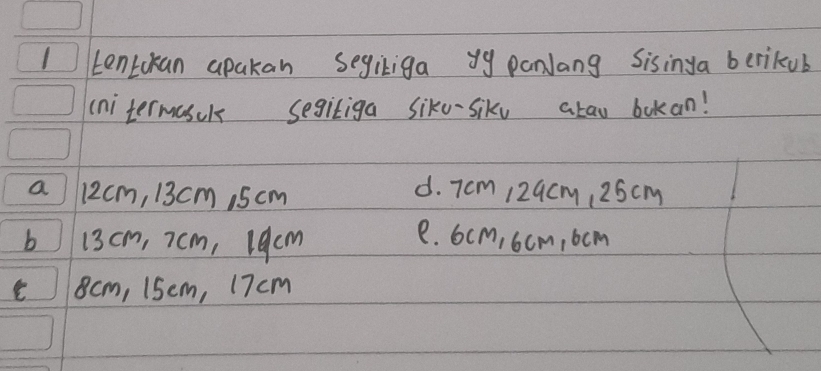 1 tentukan apakah segitiga yg panjang sisinya berikut
ini termasuk segitiga siku-siku atau bukan!
a 12cm, 13cm, 5cm
b 13cm, 7cm, 19cm
c 8cm, 15cm, 17cm
d. 7cm, 24cm, 25cm
e. 6cm, 6cm, 6cm